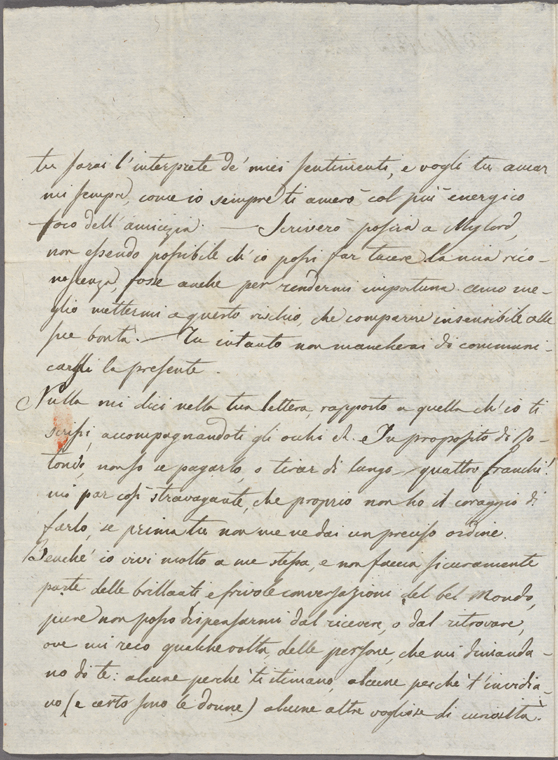 tu farai l'interprete de' miei sentimenti, e vogli tu amar
mi sempre, come io sempre ti amerò col più energico
foco dell'amicizia. — Scriverò poscia a Mylord,
non essendo possibile ch'io possi far tacere la mia rico-
noscenza, fosse anche per rendermi importuna. amo me-
glio mettermi a questo rischio, che comparire insensibile alle
sue bontà. — Tu intanto non mancherai di communi-
cargli la presente.
Nulla mi dici nella tua lettera, rapporto a quella ch'io ti
scrissi, accompagnandoti gli occhi &. e In proposito di Ro-
tondo, non so se pagarlo, o tirar di lungo — quattro franchi!
mi par così stravagante, che proprio non ho il coraggio di
farlo, se prima tu non me ne dai un preciso ordine.
Benché io vivi molto a me stessa, e non faccia sicuramente
parte delle brillanti e frivole conversazioni del bel Mondo,
pure non posso dispensarmi dal ricevere, o dal ritrovare,
ove mi reco qualche volta, delle persone, che mi dimanda-
no di te: alcune perchè ti stimano, alcune perchè t'invidia-
no (e certo sono le donne) alcune altre vogliose di curiosità.